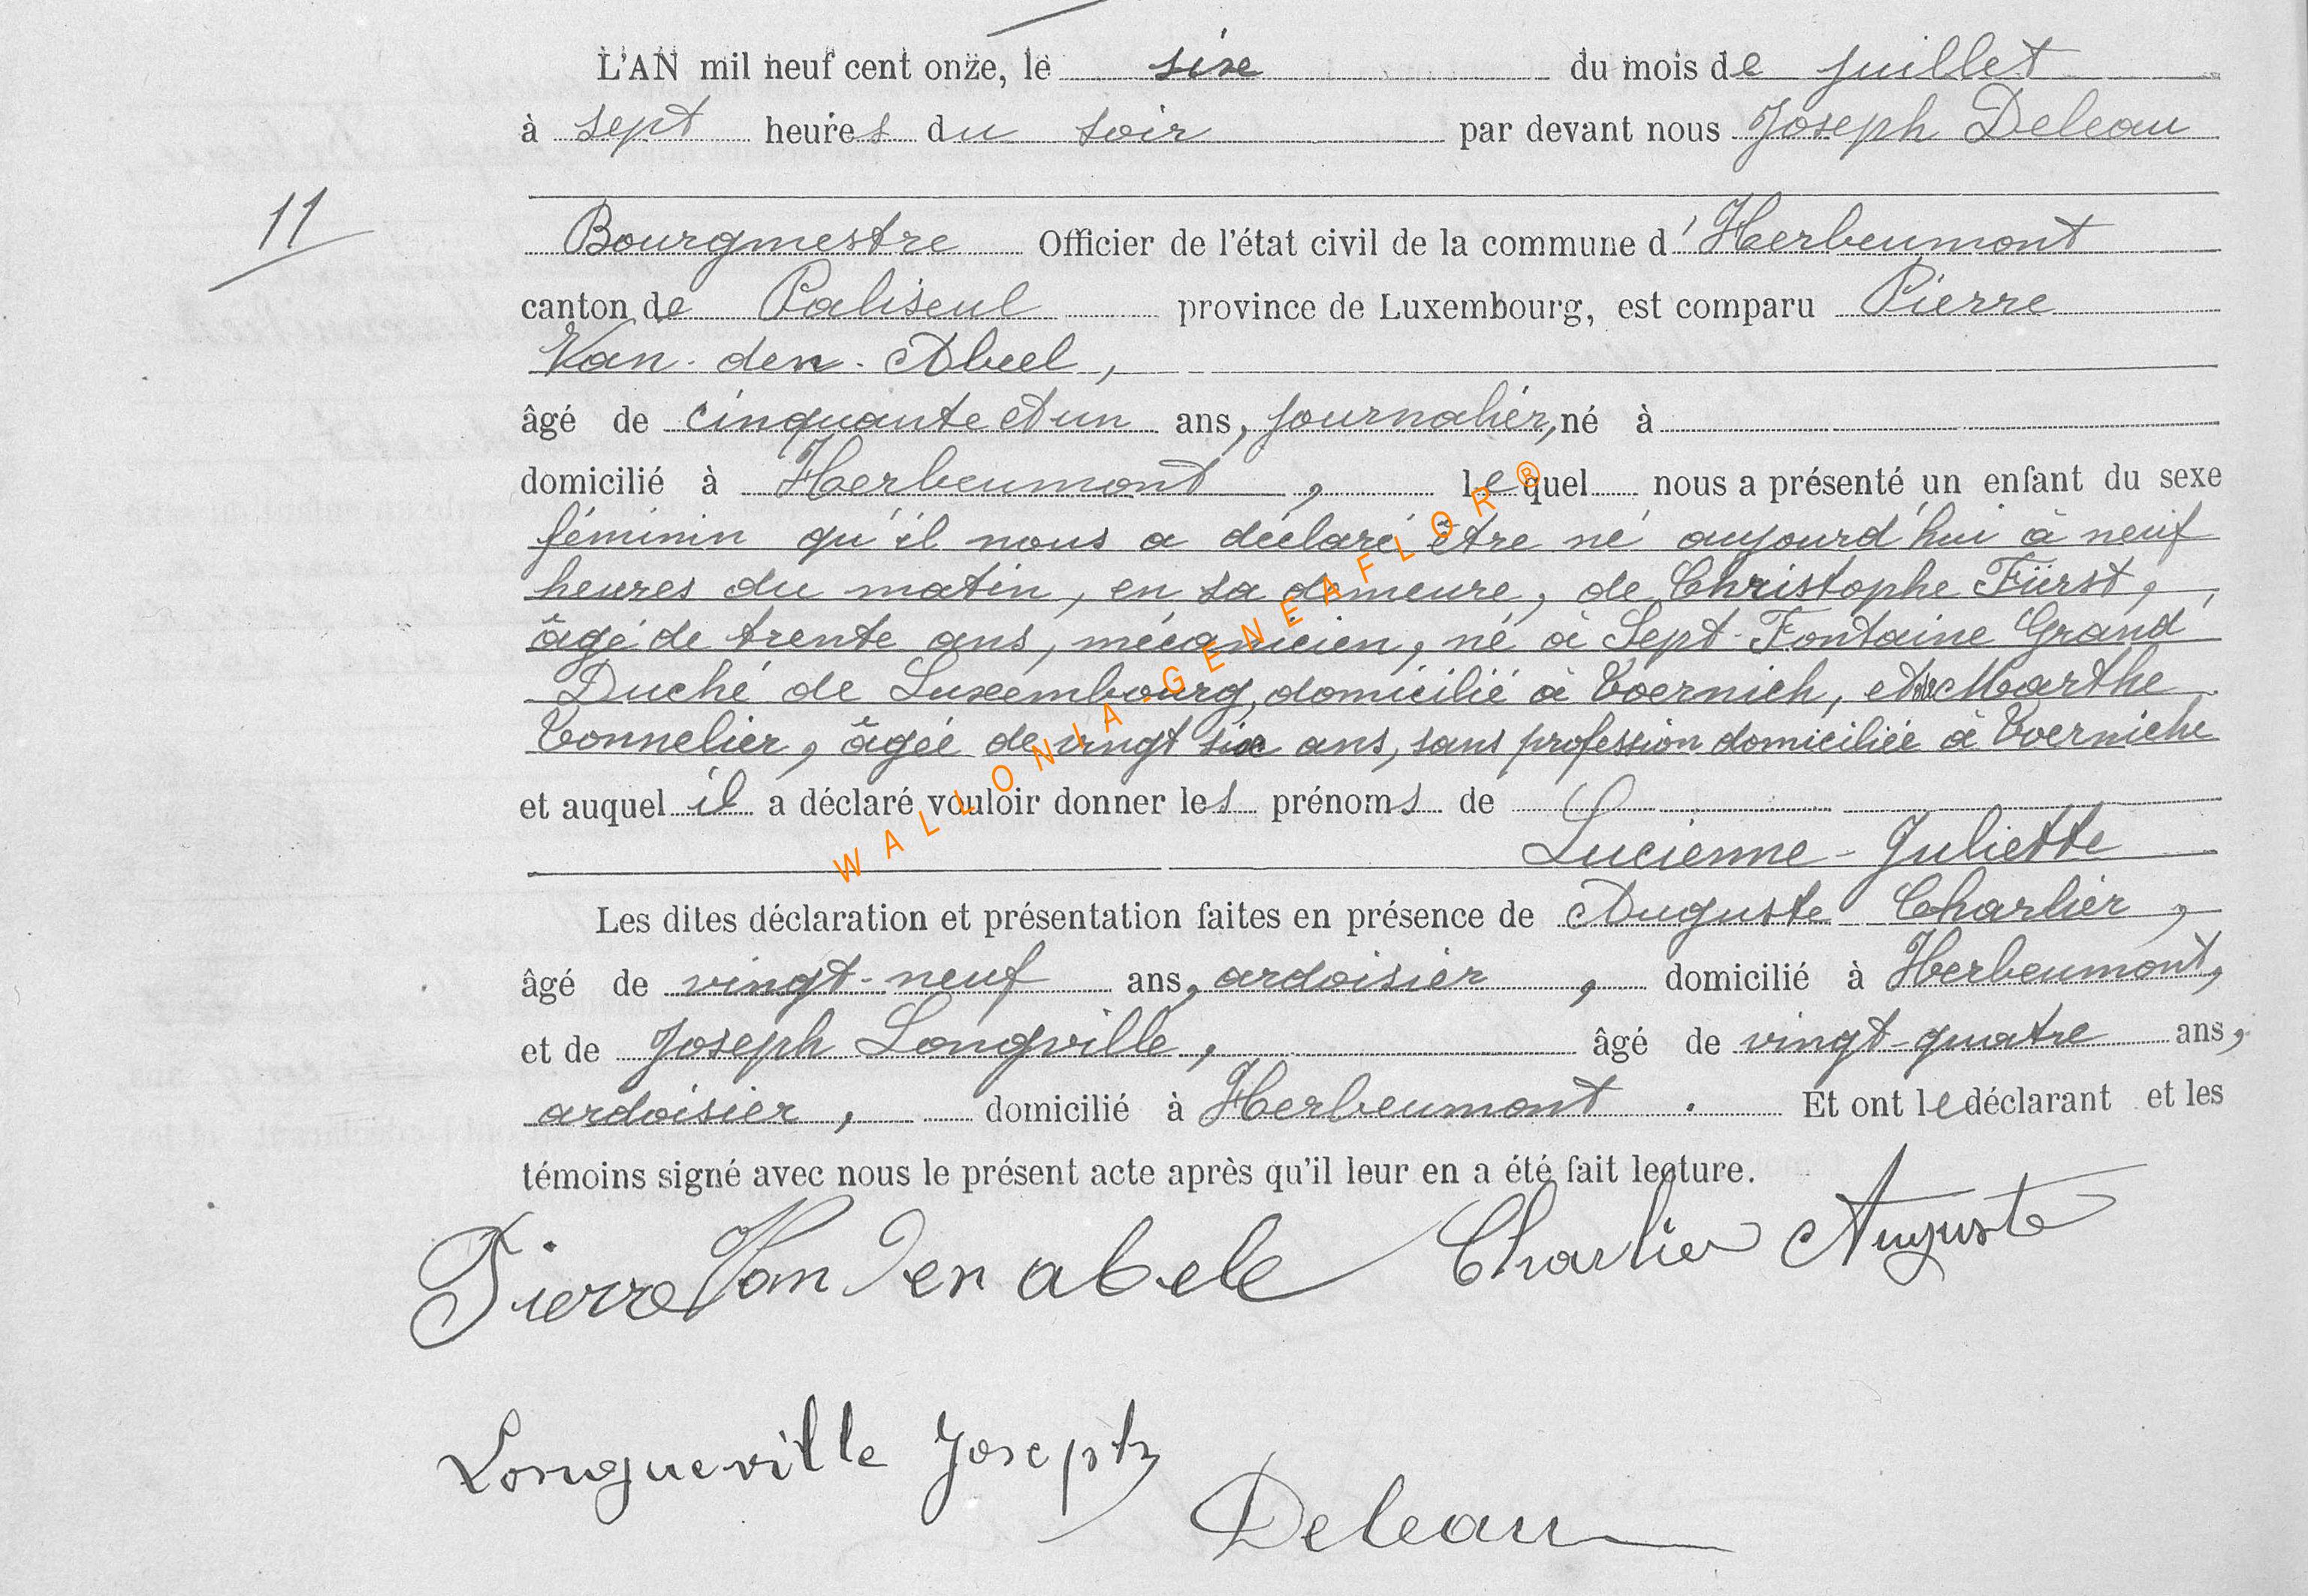 L'AN mil neuf cent onze, le sixe du mois de juillet
à sept heures du soir par devant nous Joseph Deleau
11
Bourgmestre Officier de l'état civil de la commune d'Herbeumont
canton de Paliseul province de Luxembourg, est comparu Pierre
Van-den-Abeel,
âgé de cinquante et un ans, journalier, né à
domicilié à Herbeumont, lequel nous a présenté un enfant du sexe
féminin qu'il nous a déclaré être né aujourd'hui à neuf
heures du matin, en sa demeure, de Christophe Fürst,
âgé de trente ans, mécanicien, né à Sept-Fontaine Grand
Duché de Luxembourg, domicilié à Toernich, et de Marthe
Tonnelier, âgée de vingt six ans, sans profession domiciliée à Toerniche
et auquel il a déclaré vouloir donner les prénoms de
Lucienne-Juliette
Les dites déclaration et présentation faites en présence de Auguste Charlier,
âgé de vingt-neuf ans, ardoisier, domicilié à Herbeumont,
et de Joseph Longville, âgé de vingt-quatre ans,
ardoisier, domicilié à Herbeumont. Et ont le déclarant et les
témoins signé avec nous le présent acte après qu'il leur en a été fait lecture.
Pierre Van Den abele Charlier Auguste
Longueville Joseph
Deleau
WALLONIA-GENEAFLOR®